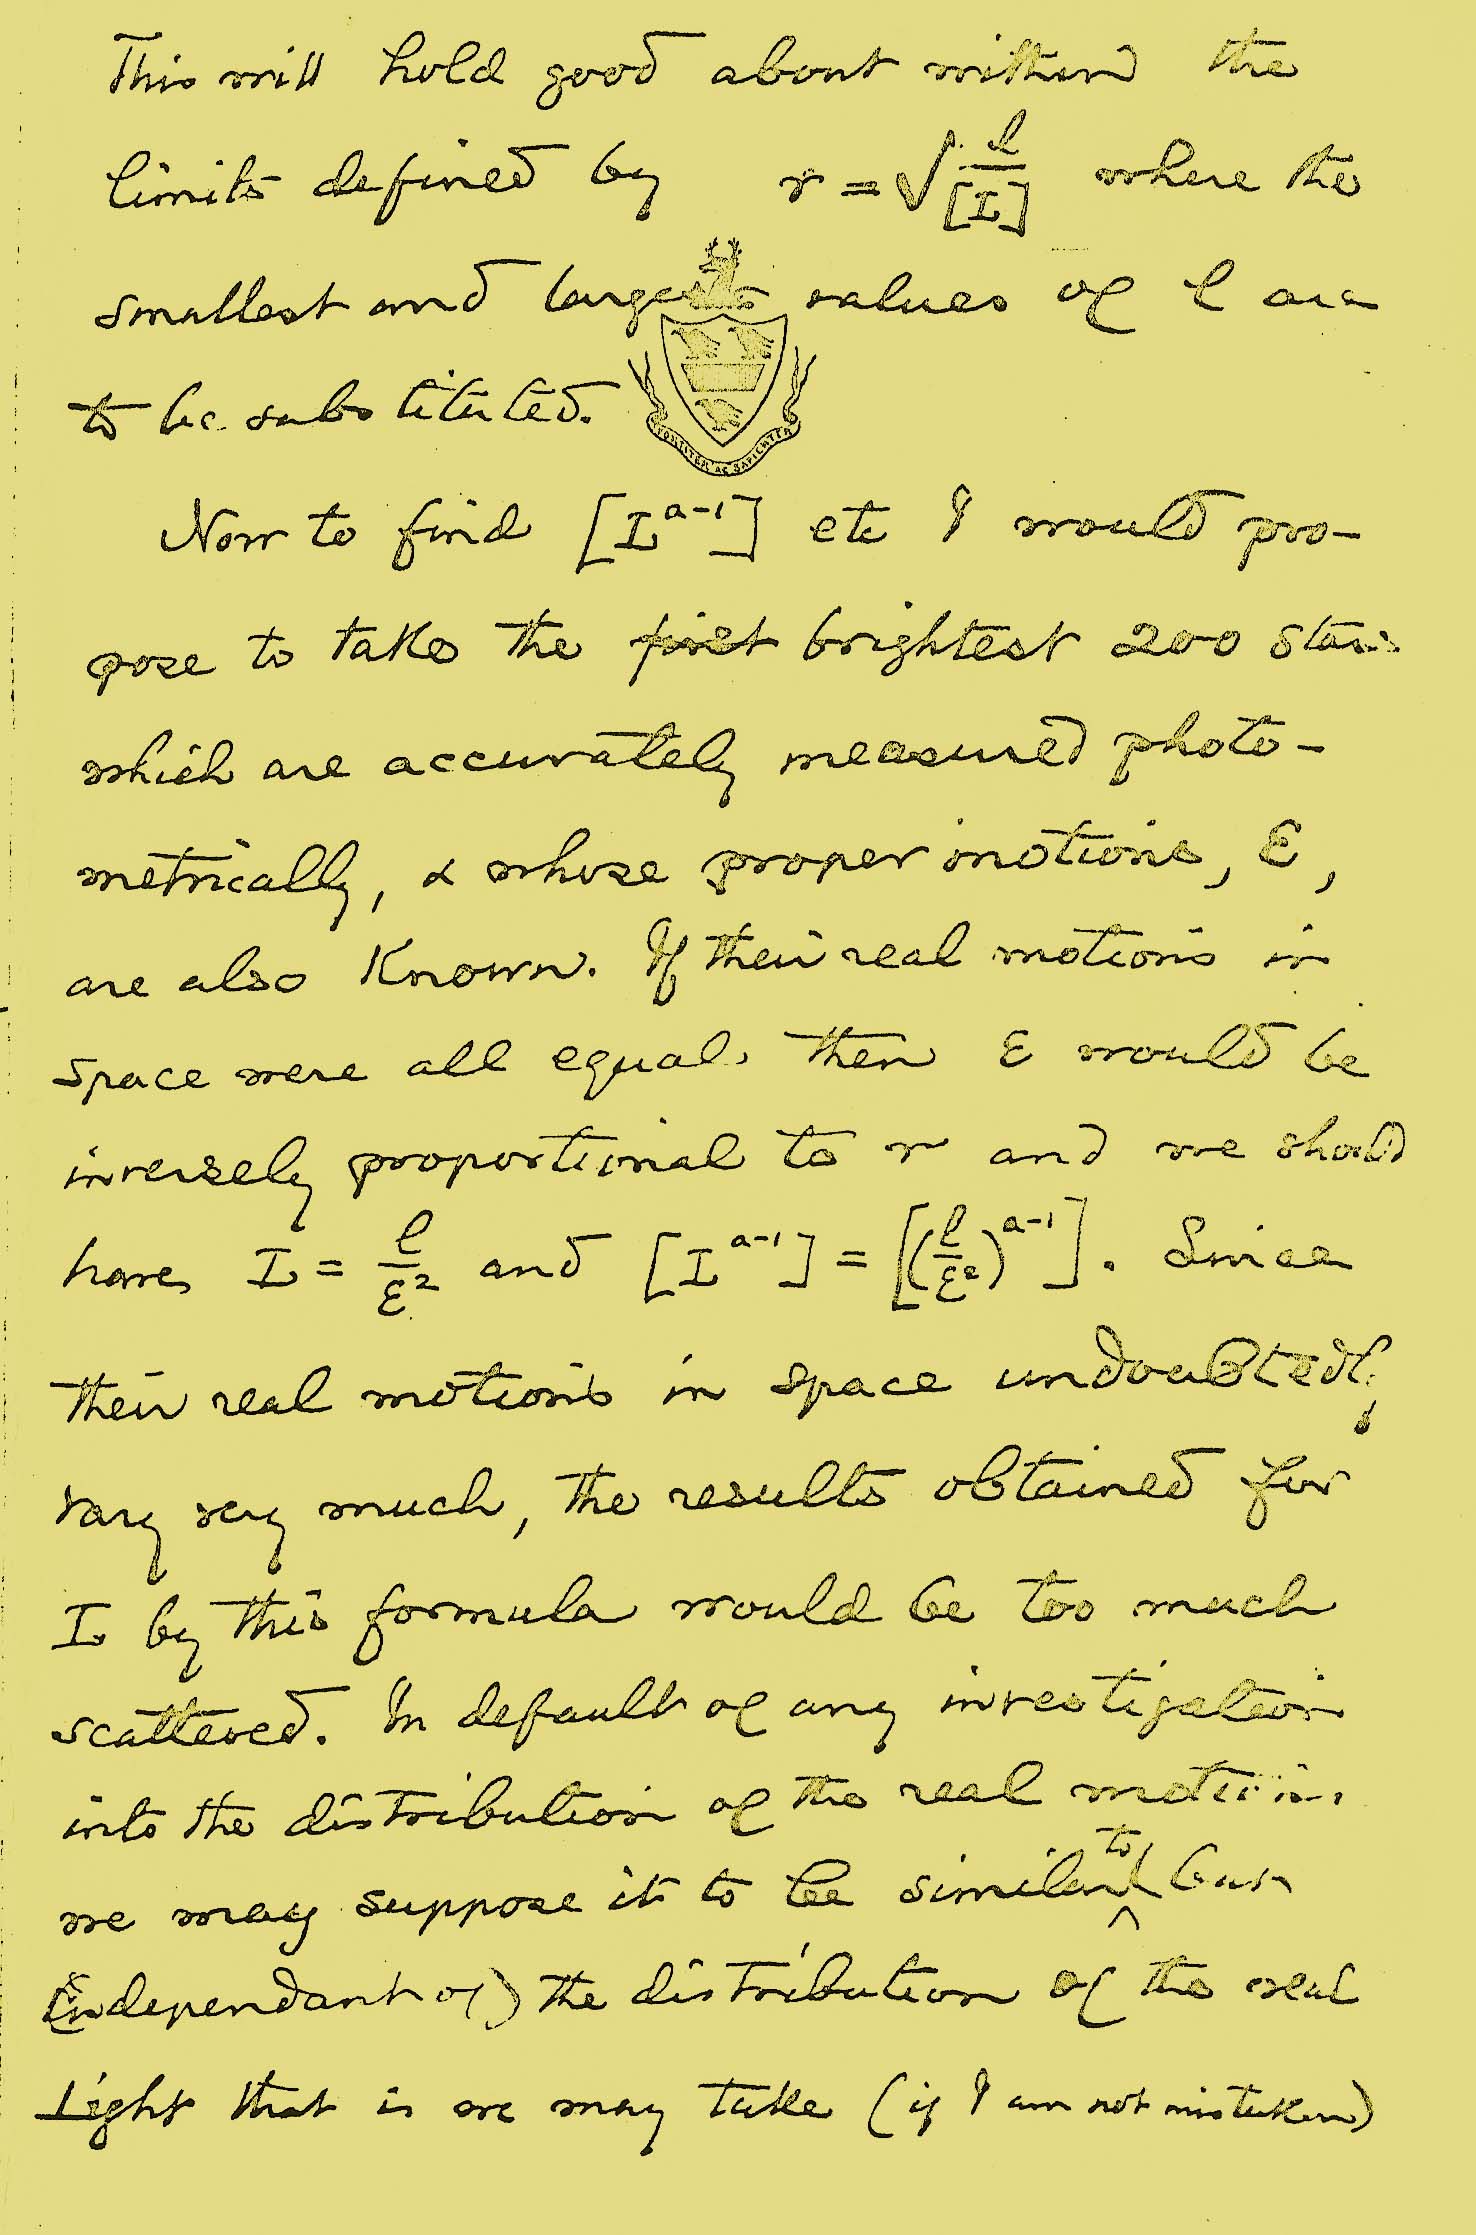 This will hold good about within the
limits defined by r = √(l/[I]) where the
smallest and largest values of l are
to be substituted.
FORTITER AC SAPIENTER
Now to find [I^(a-1)] etc I would pro-
pose to take the first brightest 200 stars
which are accurately measured photo-
metrically, & whose proper motions, ε,
are also known. If their real motions in
space were all equal, then ε would be
inversely proportional to r and we should
have, I = l/ε² and [I^(a-1)] = [(l/ε²)^(a-1)]. Since
their real motions in space undoubtedly
vary very much, the results obtained for
I by this formula would be too much
scattered. In default of any investigation
into the distribution of the real motions
we may suppose it to be similar to (but
independant of) the distribution of the real
light that is we may take (if I am not mistaken)